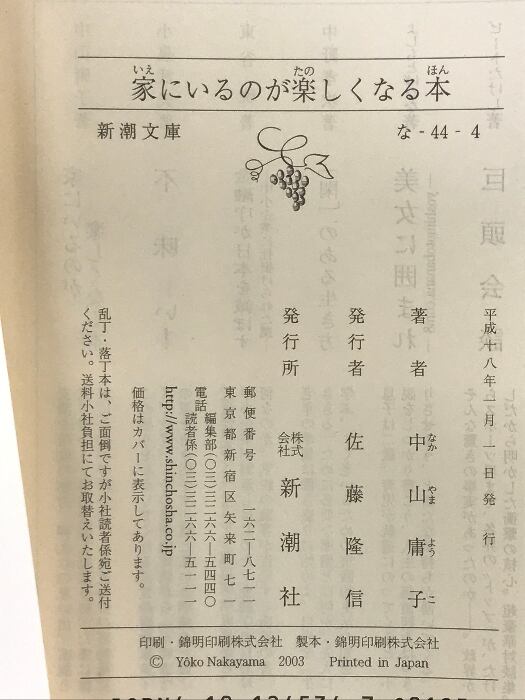 家にいるのが楽しくなる本
いえ たの ほん
新潮文庫
な - 44 - 4
平成十八年一月一日発行
著者 中山庸子
なか やま よう こ
発行者 佐藤隆信
発行所 株式会社 新潮社
郵便番号 一六二―八七一一
東京都新宿区矢来町七一
電話 編集部(〇三)三二六六―五四四〇
読者係(〇三)三二六六―五一一一
http://www.shinchosha.co.jp
価格はカバーに表示してあります。
乱丁・落丁本は、ご面倒ですが小社読者係宛ご送付
ください。送料小社負担にてお取替えいたします。
印刷・錦明印刷株式会社 製本・錦明印刷株式会社
© Yôko Nakayama 2003 Printed in Japan